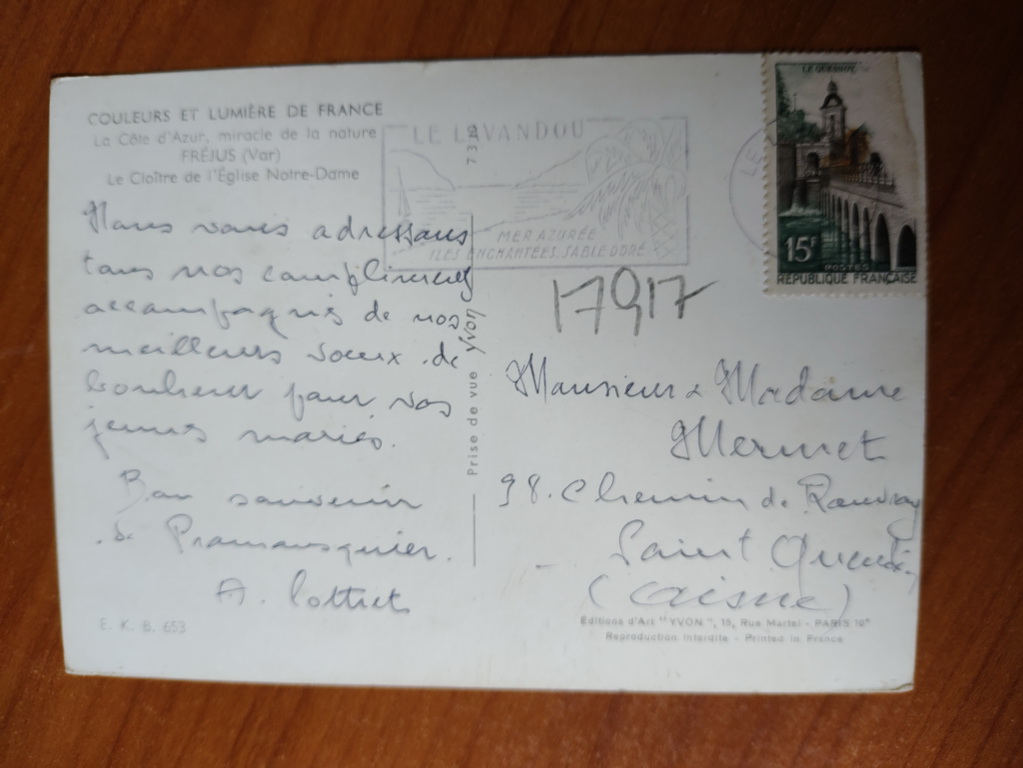 COULEURS ET LUMIÈRE DE FRANCE
La Côte d'Azur, miracle de la nature
FRÉJUS (Var)
Le Cloître de l'Église Notre-Dame
Nous vous adressons
tous nos compliments
accompagnés de nos
meilleurs voeux de
bonheur pour vos
jeunes mariés.
Bon souvenir
de Pramousquier.
A.
E. K. B. 653
Prise de vue Yvon
LE LAVANDOU
MER AZURÉE
ILES ENCHANTÉES. SABLE DORÉ
LE
LE QUESNOY
15F
POSTES
RÉPUBLIQUE FRANÇAISE
17917
Monsieur & Madame
Mermet
98. Chemin de
Saint Quentin
(Aisne)
Éditions d'Art "YVON", 15, Rue Martel - PARIS 10e
Reproduction interdite - Printed in France